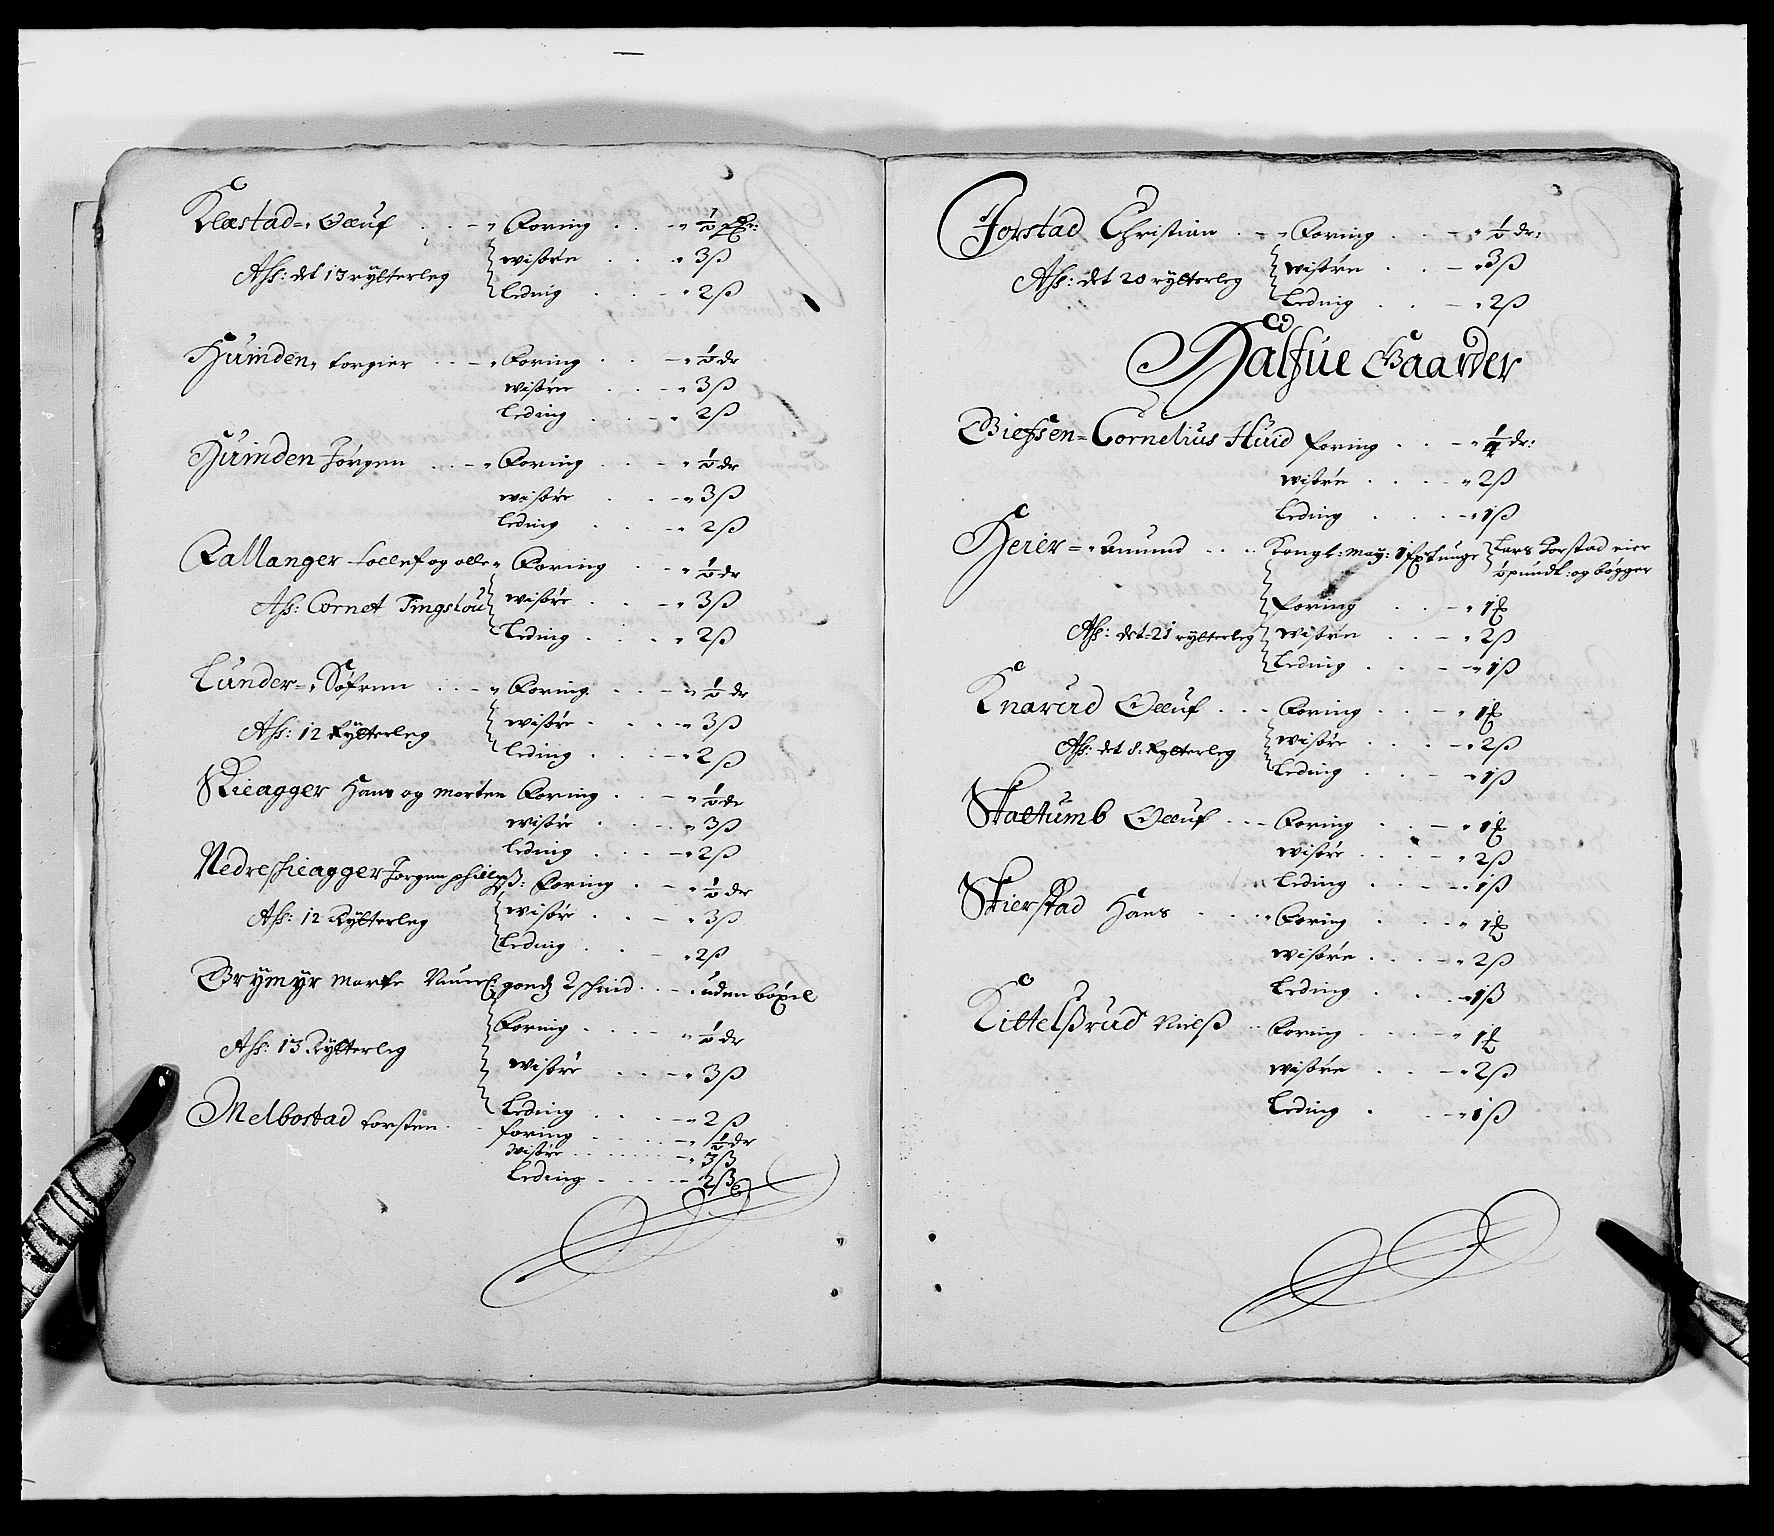 Klæstad Oluf . . - " Foring . . - " ½ dr:
Aff: det 13 rytterleg wisøre . . " 3 ß
Leding . . " 2 ß
Humden, torgier . . - " Foring . . - " ½ dr
wisøre . . - " 3 ß
Leding . . - " 2 ß
Humden Jörgen . . - " Foring . . - " ½ dr
wisøre . . - " 3 ß
leding . . - " 2 ß
Rallanger tollef og olle " Foring . . - " ½ dr
Aff: Cornet Tingslou wisøre . . - " 3 ß
Leding . . " 2 ß
Lunder - Söfren . . - " Foring . . - " ½ dr
Aff: 12 Rytterleg wisøre . . - " 3 ß
leding . . - " 2 ß
Skieagger Hans og morten Foring . . - " ½ dr
wisøre . . " 3 ß
leding . . - " 2 ß
Nedreskieagger Jörgen Foring . - " ½ dr
Aff: 12 Rytterleg wisøre . . - " 3 ß
Leding . . - " 2 ß
Brymyr 2 schind . . - . uden böxel
Foring . . - " ½ dr
Aff: 13 Rytterleg
wisøre . . - " 3 ß
Leding . . - " 2 ß
Melbostad torsten . foring . . - " ½ dr
wisøre . . - " 3 ß
Leding . . - 2 ß
Jorstad Christian . . - " Foring . . - " ½ dr:
Aff: det 20 rytterleg wisøre . . - " 3 ß
Leding . . - " 2 ß
Halfue Gaarder
Gieffsen - Cornelius Huid foring . . - " ¼ dr:
wisøre . . - " 2 ß
Leding . . - " 1 ß
Heier - Amund . . . Kongl: may: Lars Jorstad eier
½ pund: og bögger
foring . . - " 1
Aff: det 21 rytterleg wisøre . . - " 2 ß
Leding . . - " 1 ß
Knarud Oluf . . . Foring . . - " 1
Aff: det 8: Rytterleg wisøre . . - " 2 ß
Leding . . - " 1 ß
Skaltumb Oluf . . - Foring . . - " 1
wisøre . . - " 2 ß
Leding . . - " 1 ß
Skierstad Hans . . . " Foring . . - " 1
wisøre . . - " 2 ß
Leding . . - " 1 ß
Kittelßrud Nielß . . Foring . . - " 1
wisøre . . - " 2 ß
Leding . . - " 1 ß